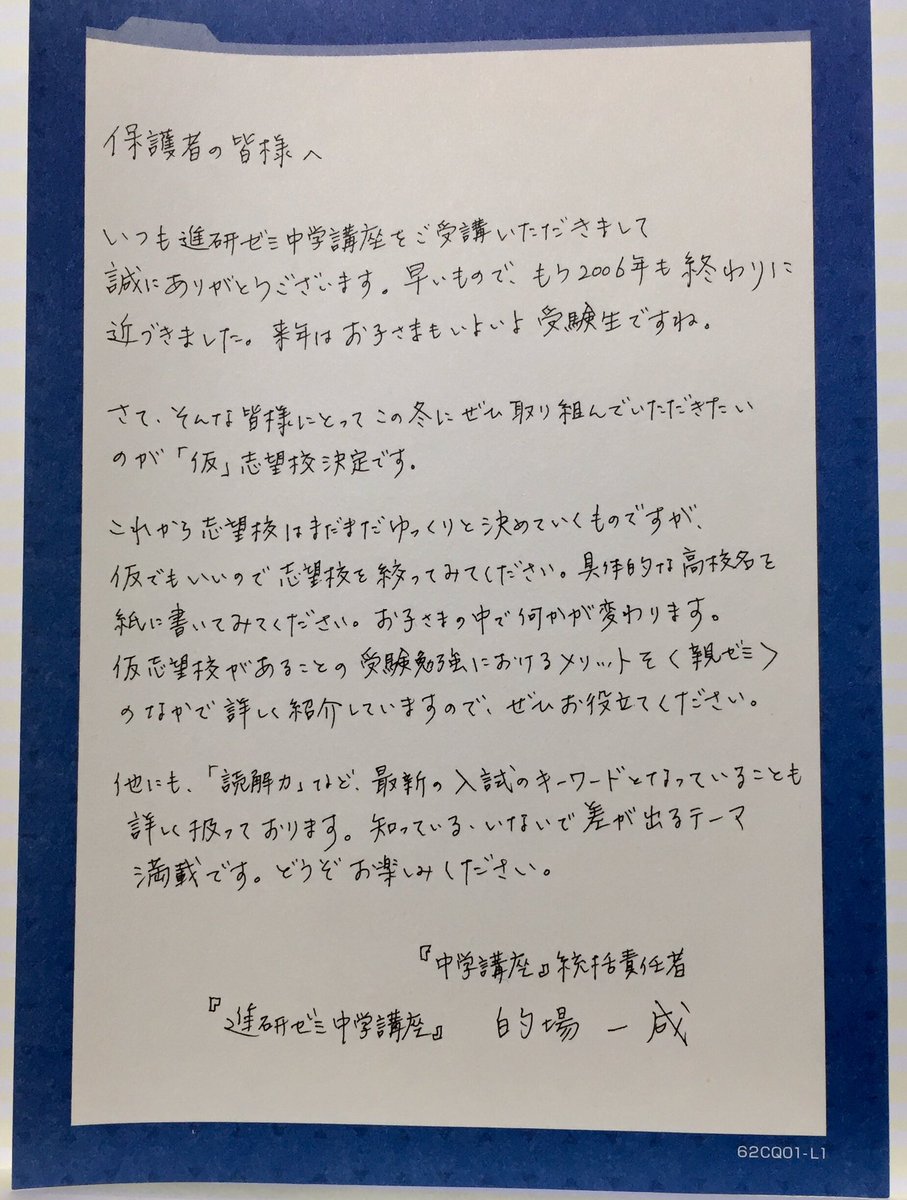 保護者の皆様へ
いつも進研ゼミ中学講座をご受講いただきまして
誠にありがとうございます。早いもので、もう2006年も終わりに
近づきました。来年はお子さまもいよいよ受験生ですね。
さて、そんな皆様にとってこの冬にぜひ取り組んでいただきたい
のが「仮」志望校決定です。
これから志望校はまだまだゆっくりと決めていくものですが、
仮でもいいので志望校を絞ってみてください。具体的な高校名を
紙に書いてみてください。お子さまの中で何かが変わります。
仮志望校があることの受験勉強におけるメリットを〈親ゼミ〉
のなかで詳しく紹介していますので、ぜひお役立てください。
他にも、「読解力」など、最新の入試のキーワードとなっていることも
詳しく扱っております。知っている、いないで差が出るテーマ
満載です。どうぞお楽しみください。
『中学講座』統括責任者
『進研ゼミ中学講座』 的場一成
62CQ01-L1